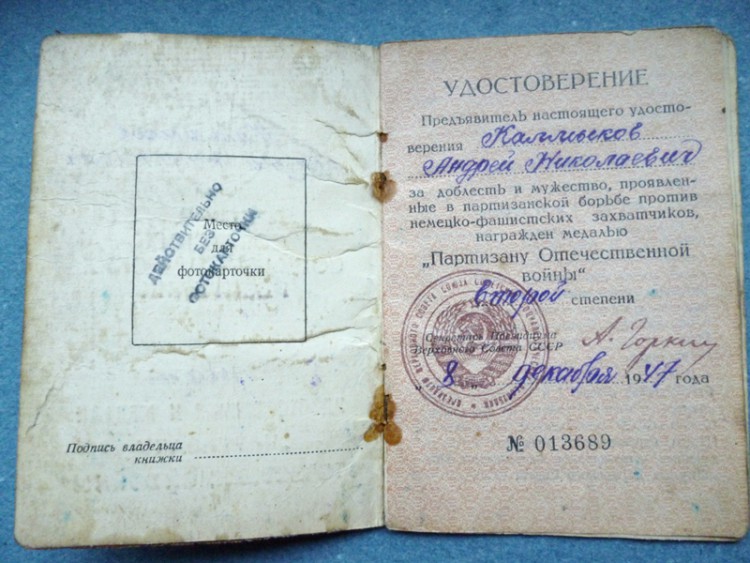 ДЕЙСТВИТЕЛЬНО
БЕЗ
ФОТОКАРТОЧКИ
Место
для
фотокарточки
Подпись владельца
книжки
УДОСТОВЕРЕНИЕ
Предъявитель настоящего удосто-
верения Калмыков
Андрей Николаевич
за доблесть и мужество, проявлен-
ные в партизанской борьбе против
немецко-фашистских захватчиков,
награжден медалью
„Партизану Отечественной
войны“
второй степени
Секретарь Президиума
Верховного Совета СССР А. Горкин
8 декабря 1947 года
№ 013689